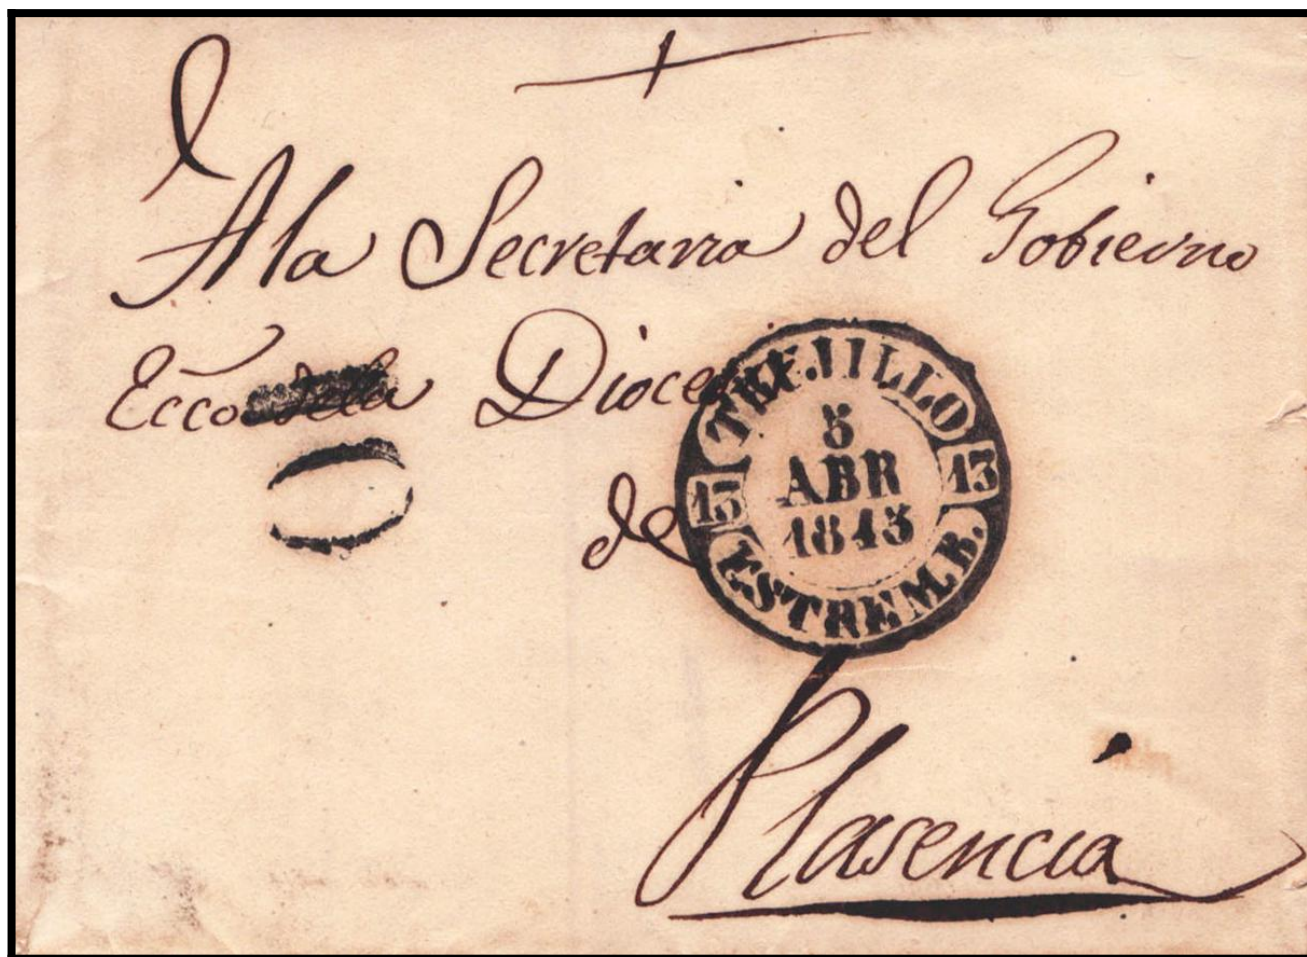 A la Secretaria del Gobierno
Ecco. dela Diocesis
de
TRUJILLO
5
ABR
1845
13
13
ESTREM.B.
Plasencia